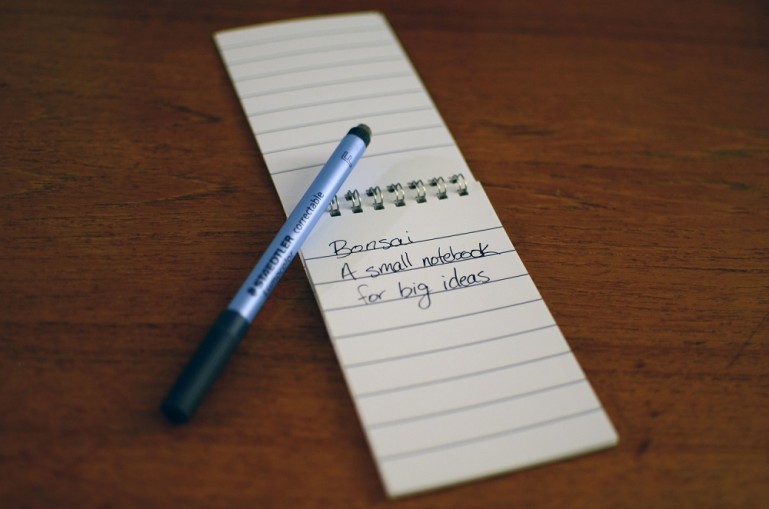 Bonsai
A small notebook
for big ideas
STAEDTLER correctable